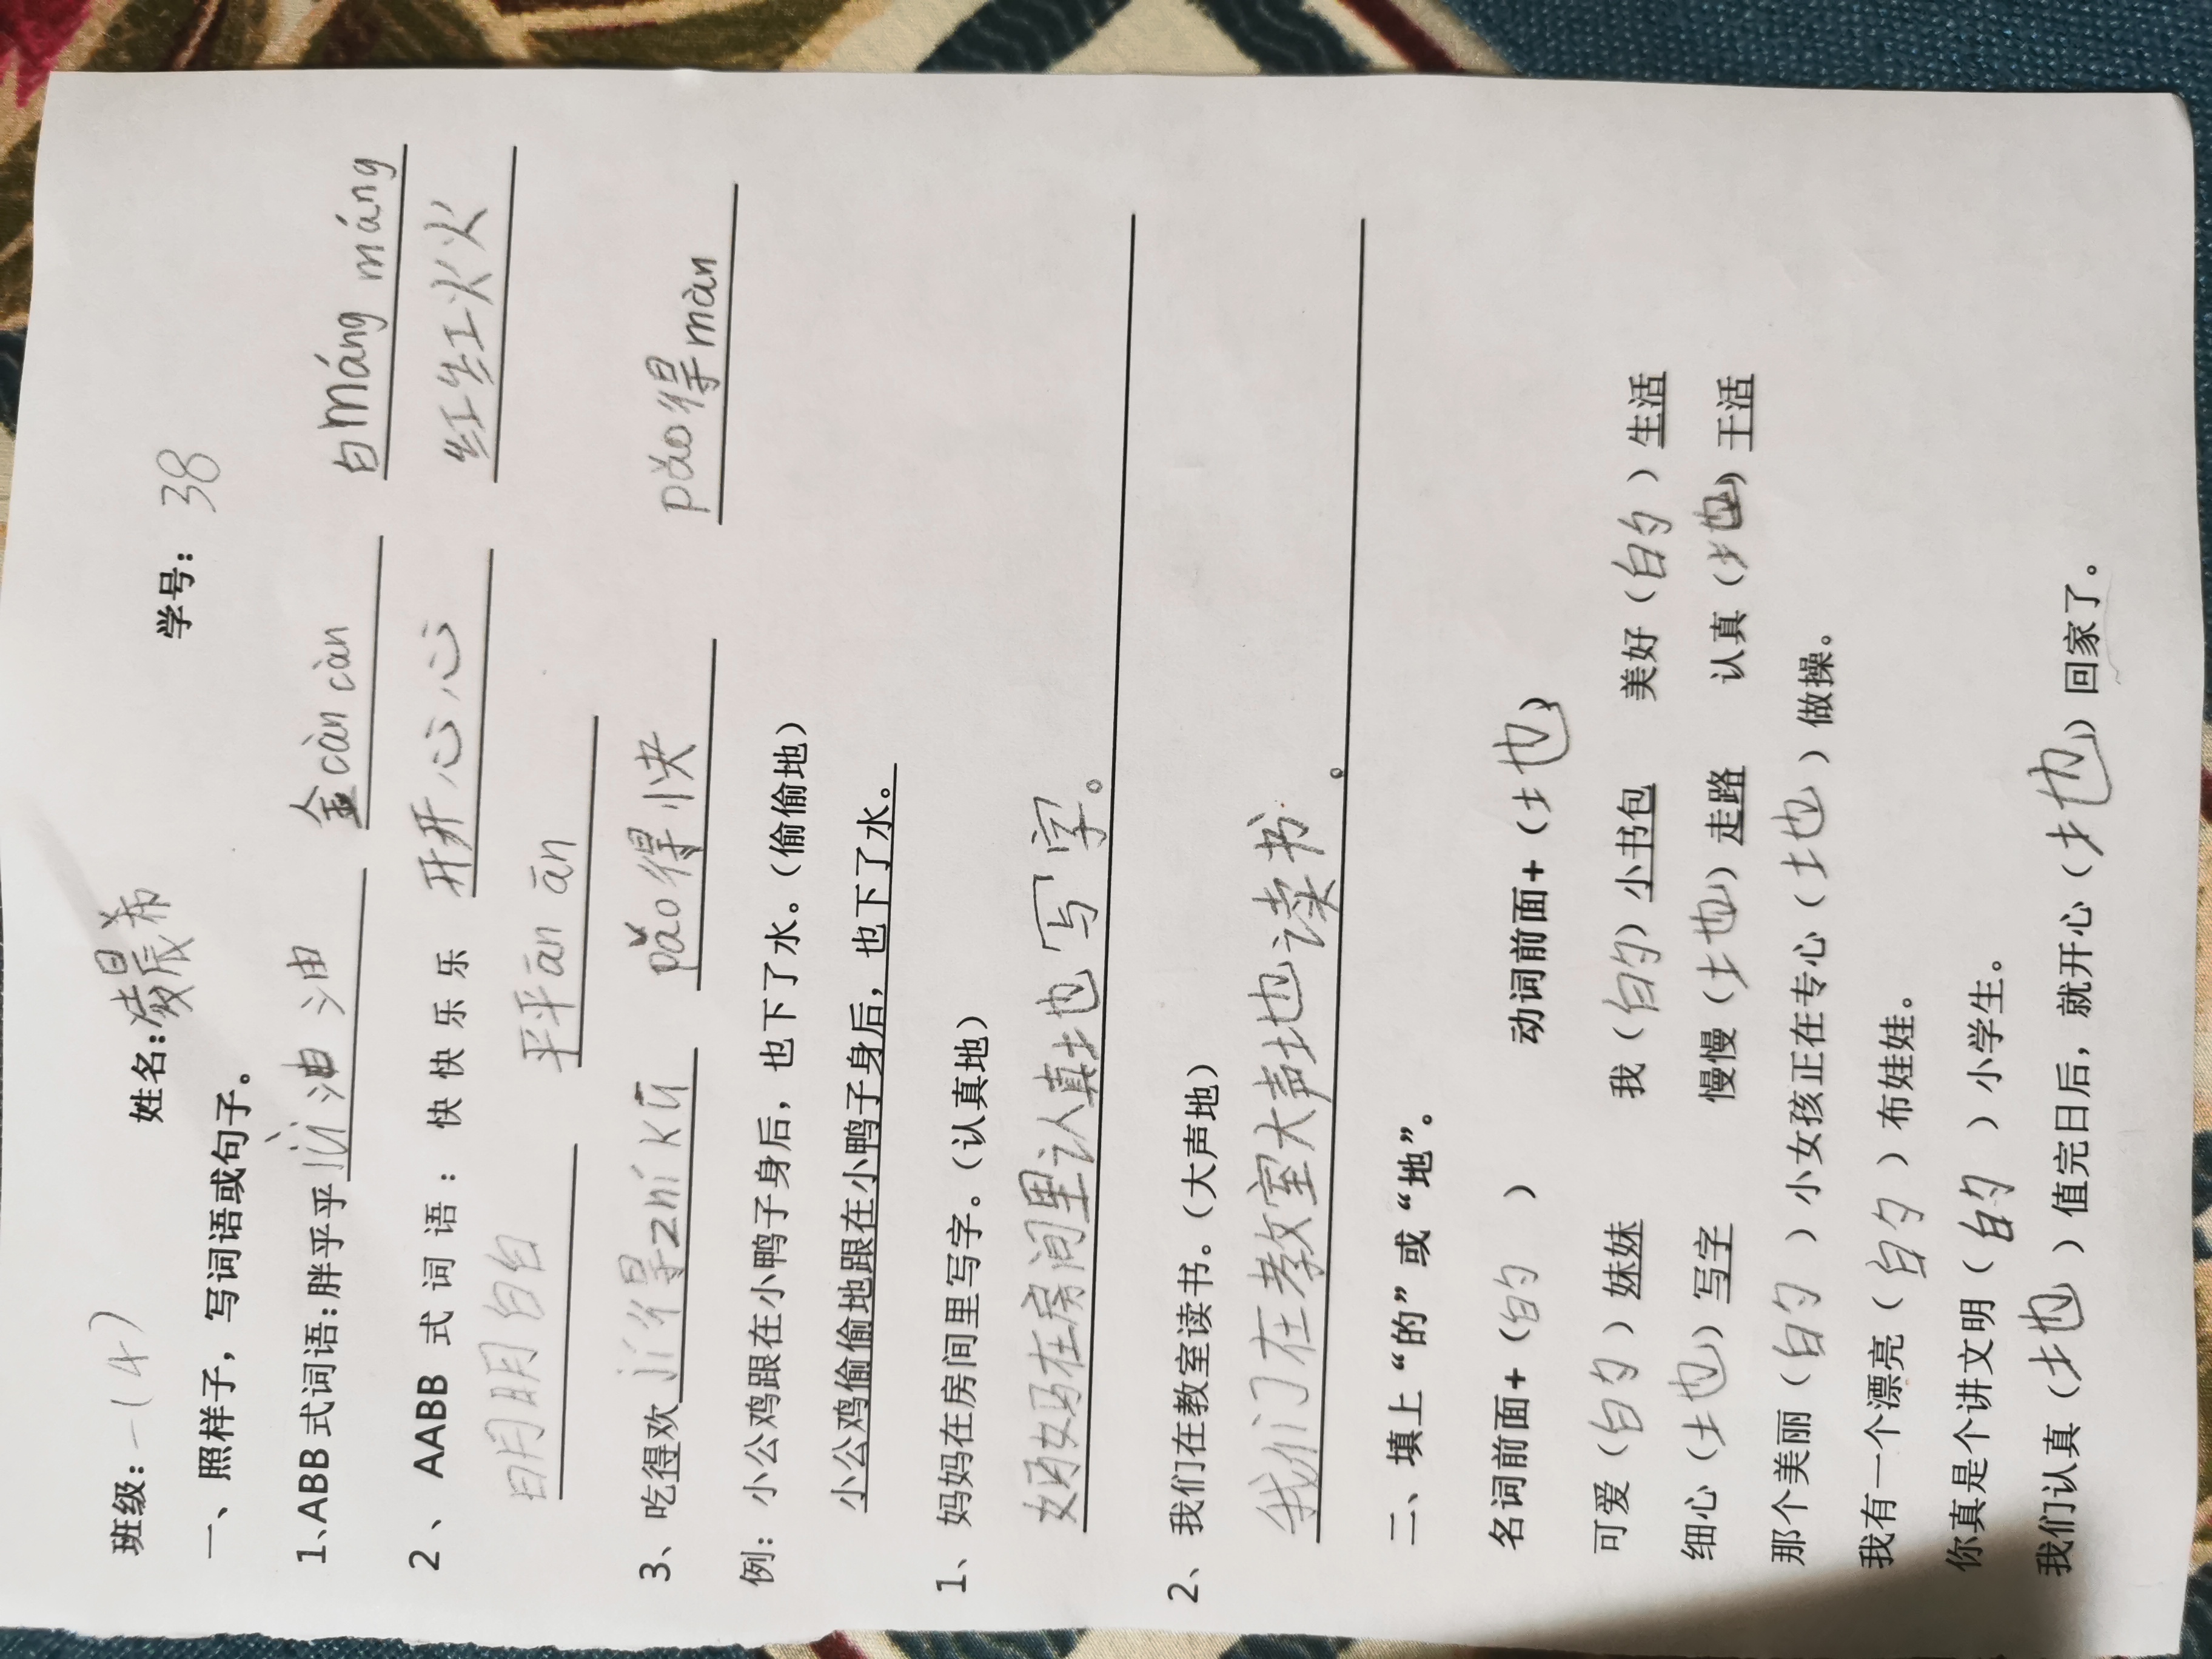 班级：一(4) 姓名：凌晨希 学号：38
一、照样子，写词语或句子。
1、ABB 式词语：胖乎乎 lǜ油油 金càn càn 白máng máng
2、AABB 式词语：快快乐乐 开开心心 红红火火
明明白白 平平ān ān
3、吃得欢 jí得zhí kū pǎo得快 pǎo得màn
例：小公鸡跟在小鸭子身后，也下了水。（偷偷地）
小公鸡偷偷地跟在小鸭子身后，也下了水。
1、妈妈在房间里写字。（认真地）
妈妈在房间里认真地写字。
2、我们在教室读书。（大声地）
我们在教室大声地读书。
二、填上“的”或“地”。
名词前面+（的） 动词前面+（地）
可爱（的）妹妹 我（的）小书包 美好（的）生活
细心（地）写字 慢慢（地）走路 认真（地）干活
那个美丽（的）小女孩正在专心（地）做操。
我有一个漂亮（的）布娃娃。
你真是个讲文明（的）小学生。
我们认真（地）值完日后，就开心（地）回家了。